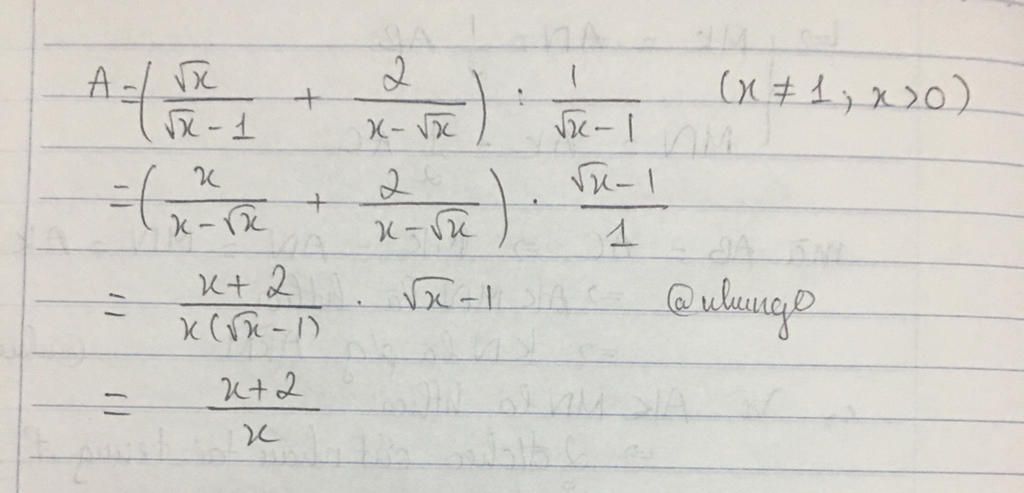 A = (√x / (√x - 1) + 2 / (x - √x)) : 1 / (√x - 1) (x ≠ 1; x > 0)
= (x / (x - √x) + 2 / (x - √x)) · (√x - 1) / 1
= (x + 2) / (x(√x - 1)) · √x - 1 @nhung
= (x + 2) / x